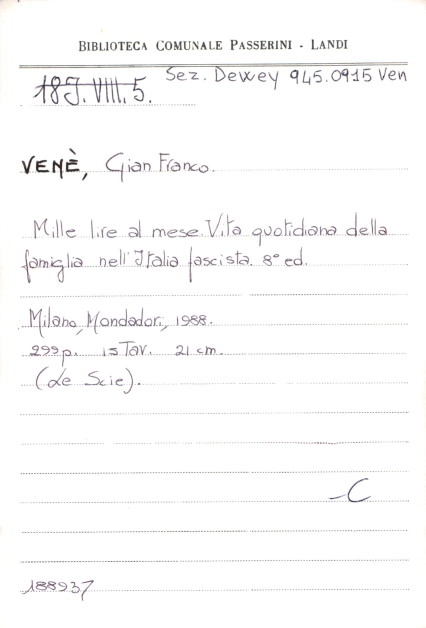 BIBLIOTECA COMUNALE PASSERINI - LANDI
Sez. Dewey 945.0915 Ven
18J.VIII.5.
VENÈ, Gian Franco.
Mille lire al mese. Vita quotidiana della
famiglia nell'Italia fascista. 8° ed.
Milano, Mondadori, 1988.
299 p. 15 Tav. 21 cm.
(Le Scie).
-C
188937